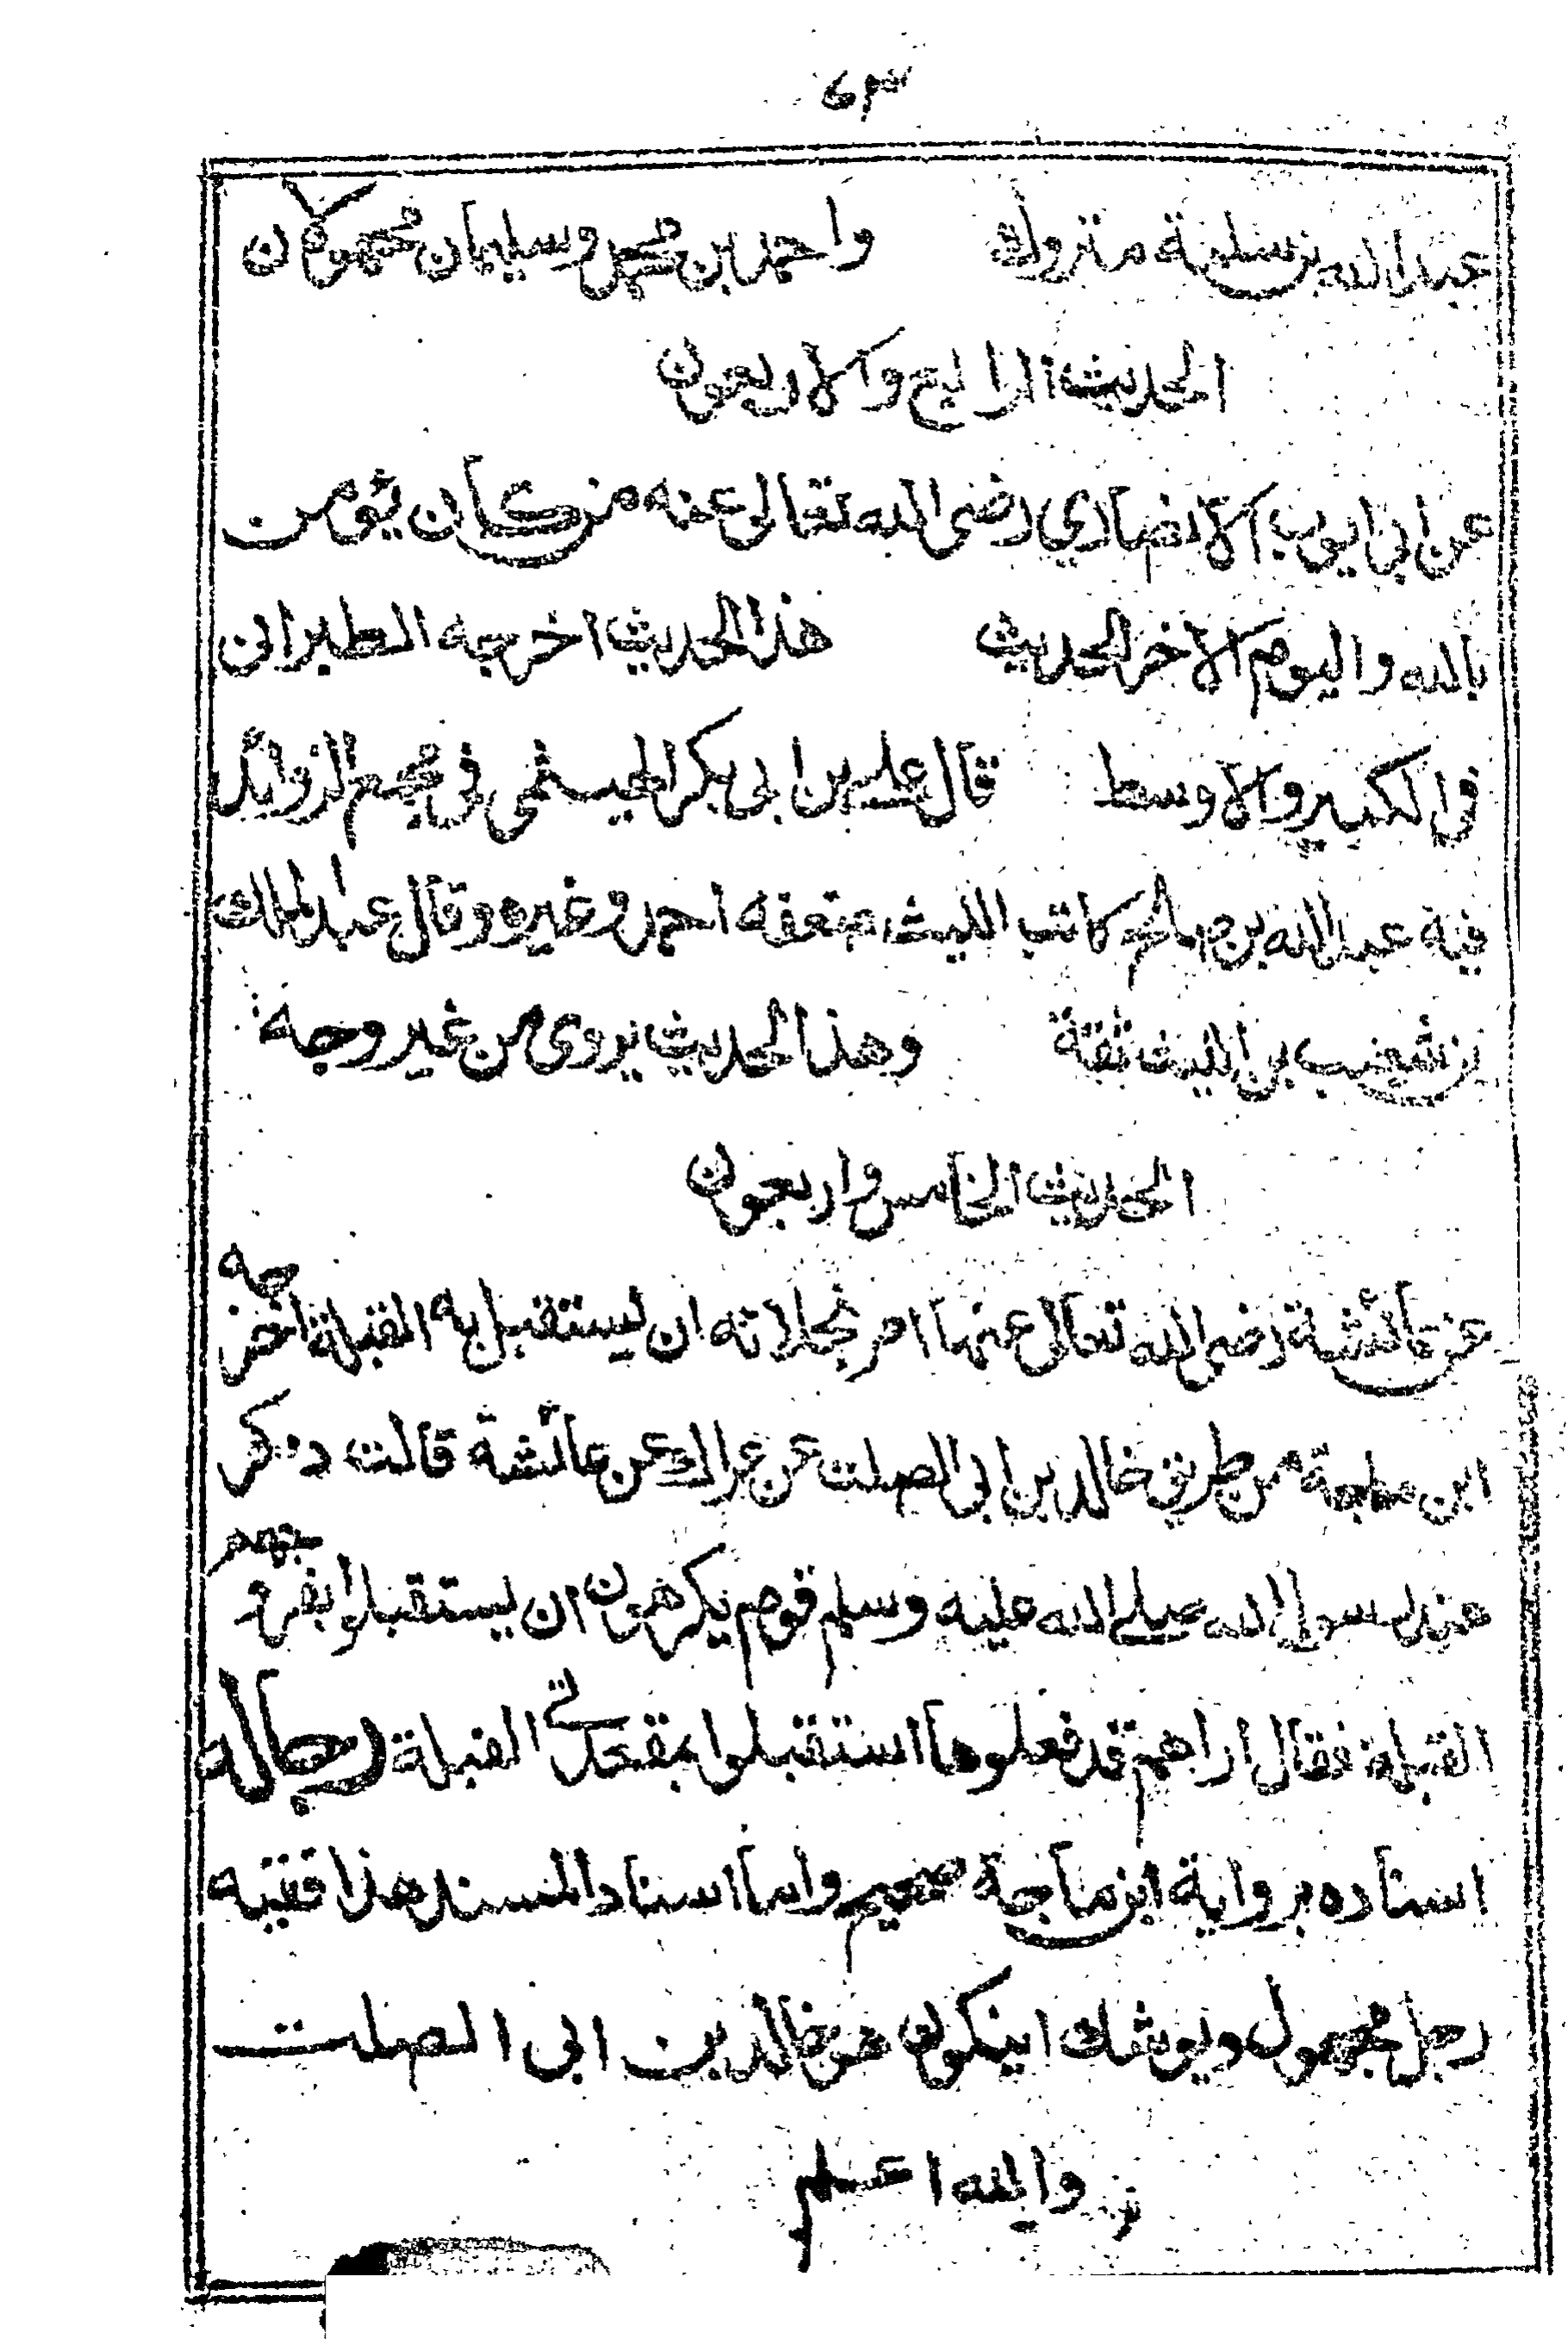 ٤٣
عبد الله بن سلمة متروك واحمد بن محمد وسليمان مجهولان
الحديث الرابع والاربعون
عن ابي ايوب الانصاري رضى الله تعالى عنه من كان يؤمن
بالله واليوم الاخر الحديث هذا الحديث اخرجه الطبرانى
فى الكبير والاوسط قال على بن ابى بكر الهيثمى فى مجمع الزوائد
فيه عبد الله بن صالح كاتب الليث ضعفه احمد وغيره وقال عبد الملك
بن شعيب بن الليث ثقة وهذا الحديث يروى من غير وجه
الحديث الخامس واربعون
عن عائشة رضى الله تعالى عنها امر بخلائه ان يستقبل به القبلة اخرجه
ابن ماجة من طريق خالد بن ابى الصلت عن عراك عن عائشة قالت ذكر
عند رسول الله صلى الله عليه وسلم قوم يكرهون ان يستقبلوا بفروجهم
القبلة فقال اراهم قد فعلوها استقبلوا بمقعدتي القبلة رجاله
اسناده برواية ابن ماجة صحيح واما اسناد المسند هذا ففيه
رجل مجهول ويوشك ان يكون هو خالد بن ابى الصلت
والله اعلم